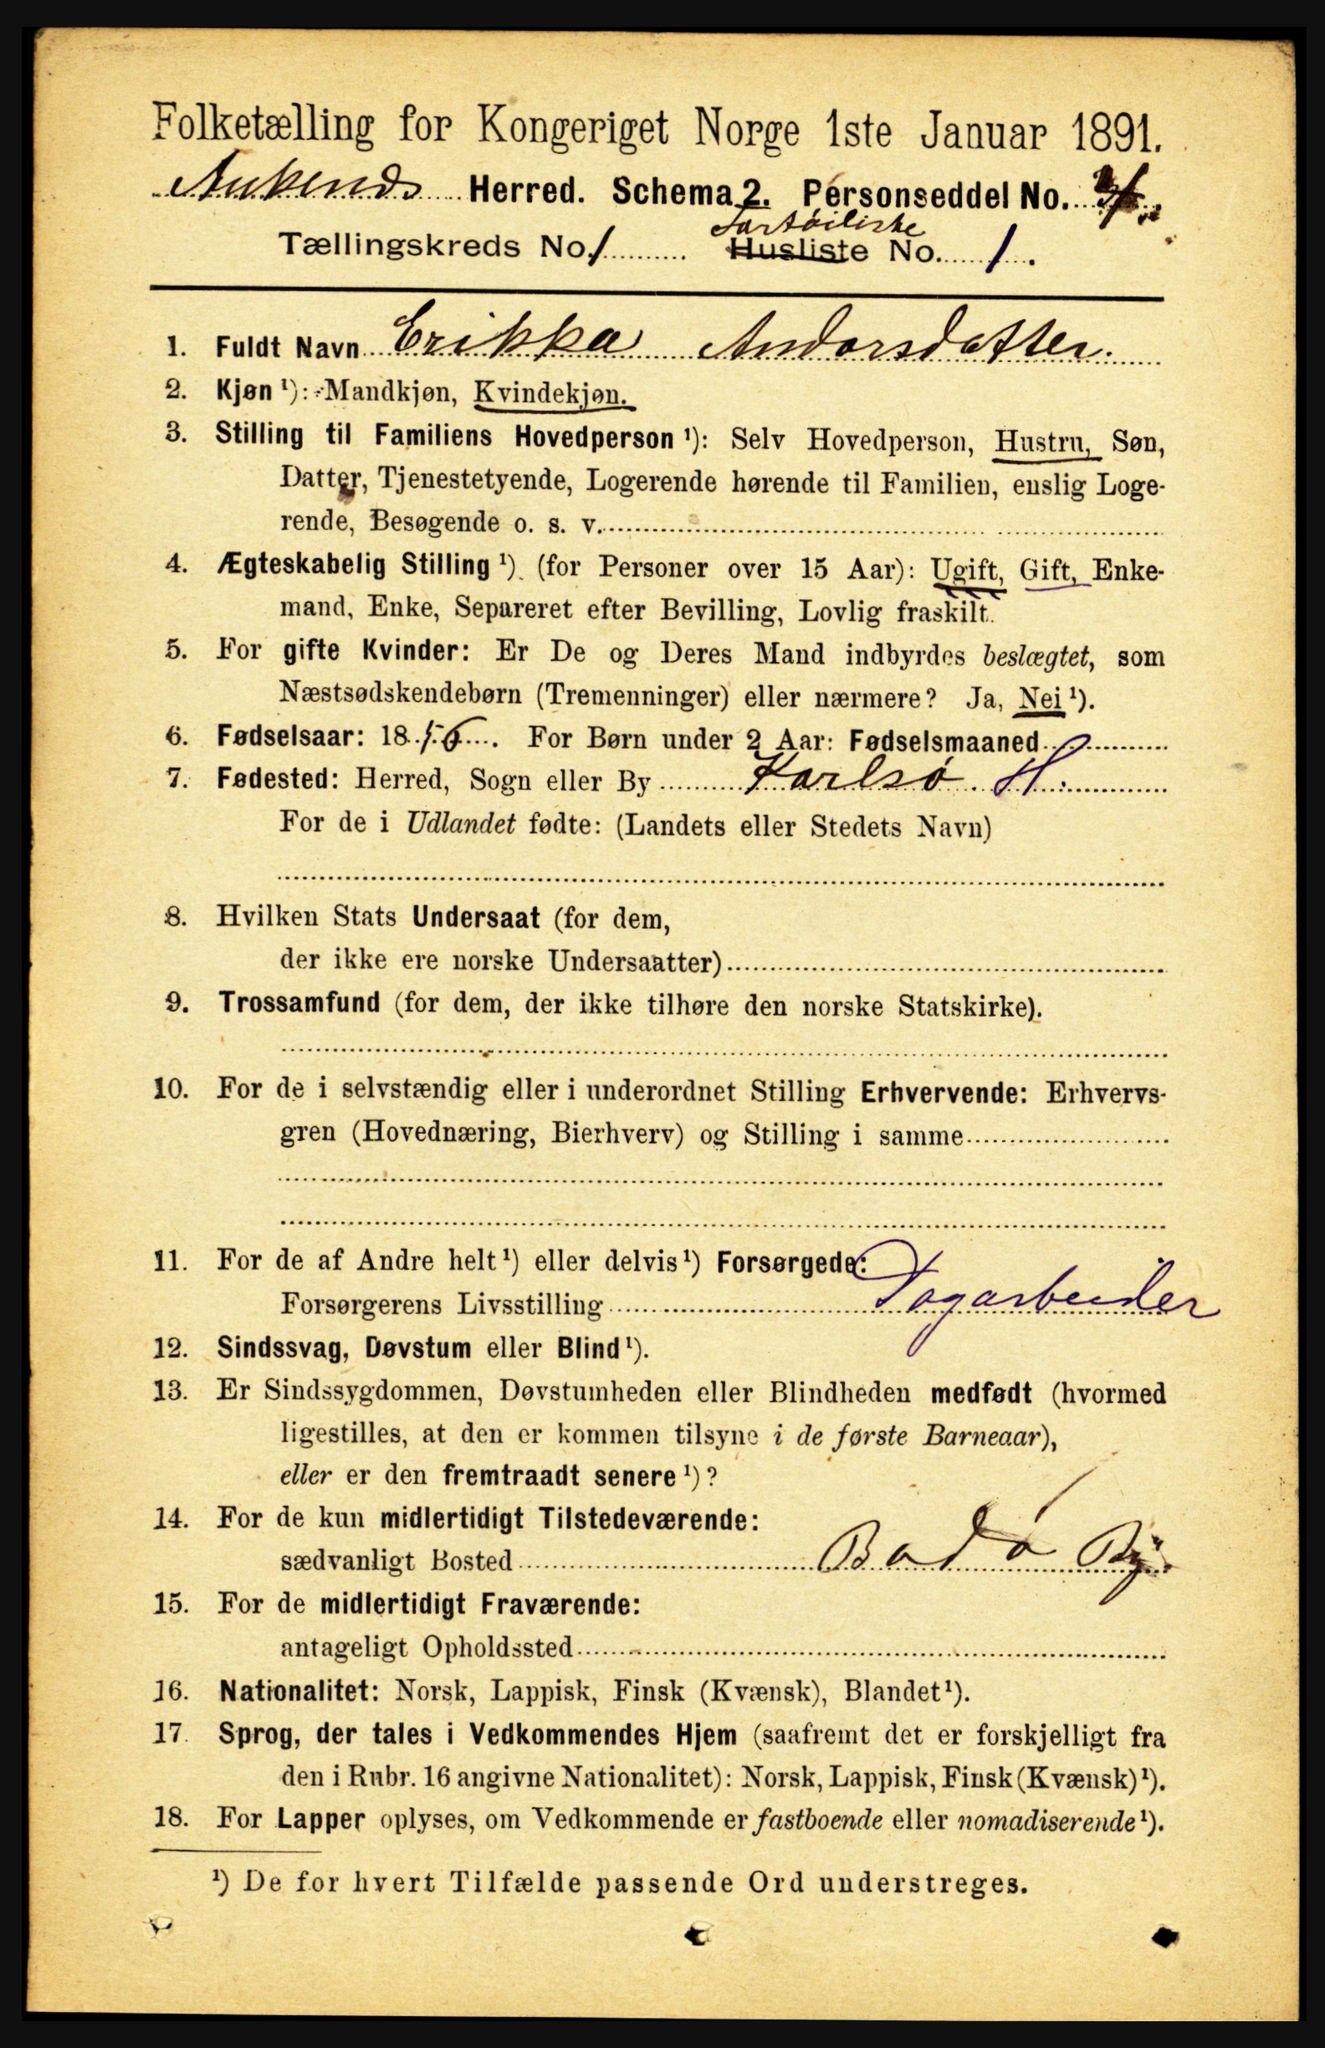 Folketælling for Kongeriget Norge 1ste Januar 1891.
Ankenes Herred. Schema 2. Personseddel No.
Fartøiliste
Tællingskreds No. 1 Husliste No. 1.
1. Fuldt Navn Erikka Andorsdatter.
2. Kjøn ¹): Mandkjøn, Kvindekjøn.
3. Stilling til Familiens Hovedperson ¹): Selv Hovedperson, Hustru, Søn,
Datter, Tjenestetyende, Logerende hørende til Familien, enslig Loge-
rende, Besøgende o. s. v.
4. Ægteskabelig Stilling ¹) (for Personer over 15 Aar): Ugift, Gift, Enke-
mand, Enke, Separeret efter Bevilling, Lovlig fraskilt.
5. For gifte Kvinder: Er De og Deres Mand indbyrdes beslægtet, som
Næstsødskendebørn (Tremenninger) eller nærmere? Ja, Nei ¹).
6. Fødselsaar: 1856. For Børn under 2 Aar: Fødselsmaaned
7. Fødested: Herred, Sogn eller By Karlsø H.
For de i Udlandet fødte: (Landets eller Stedets Navn)
8. Hvilken Stats Undersaat (for dem,
der ikke ere norske Undersaatter)
9. Trossamfund (for dem, der ikke tilhøre den norske Statskirke).
10. For de i selvstændig eller i underordnet Stilling Erhvervende: Erhvervs-
gren (Hovednæring, Bierhverv) og Stilling i samme
11. For de af Andre helt ¹) eller delvis ¹) Forsørgede:
Forsørgerens Livsstilling Dagarbeider
12. Sindssvag, Døvstum eller Blind ¹).
13. Er Sindssygdommen, Døvstumheden eller Blindheden medfødt (hvormed
ligestilles, at den er kommen tilsyne i de første Barneaar),
eller er den fremtraadt senere ¹)?
14. For de kun midlertidigt Tilstedeværende:
sædvanligt Bosted Bodø By.
15. For de midlertidigt Fraværende:
antageligt Opholdssted
16. Nationalitet: Norsk, Lappisk, Finsk (Kvænsk), Blandet ¹).
17. Sprog, der tales i Vedkommendes Hjem (saafremt det er forskjelligt fra
den i Rubr. 16 angivne Nationalitet): Norsk, Lappisk, Finsk (Kvænsk) ¹).
18. For Lapper oplyses, om Vedkommende er fastboende eller nomadiserende ¹).
¹) De for hvert Tilfælde passende Ord understreges.